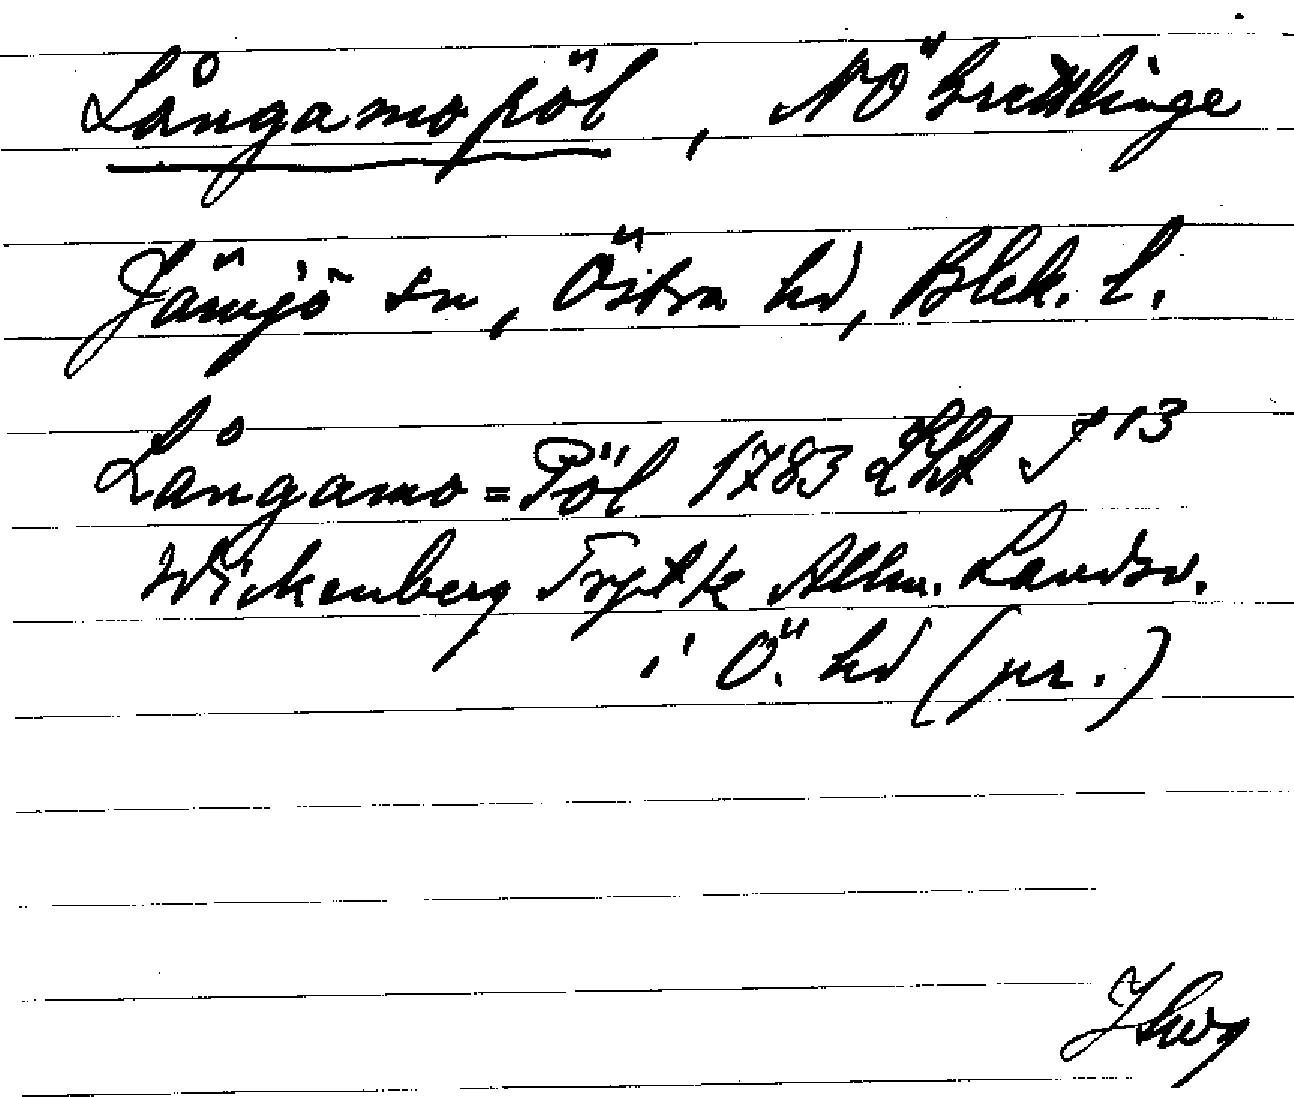 Långamopöl, NÖ Grettlinge
Jämjö sn, Östra hd, Blek. l.
Långamo=Pöl 1783 Lht J 13
Wickenberg Allm. Landsv.
i Ö. hd (pr.)